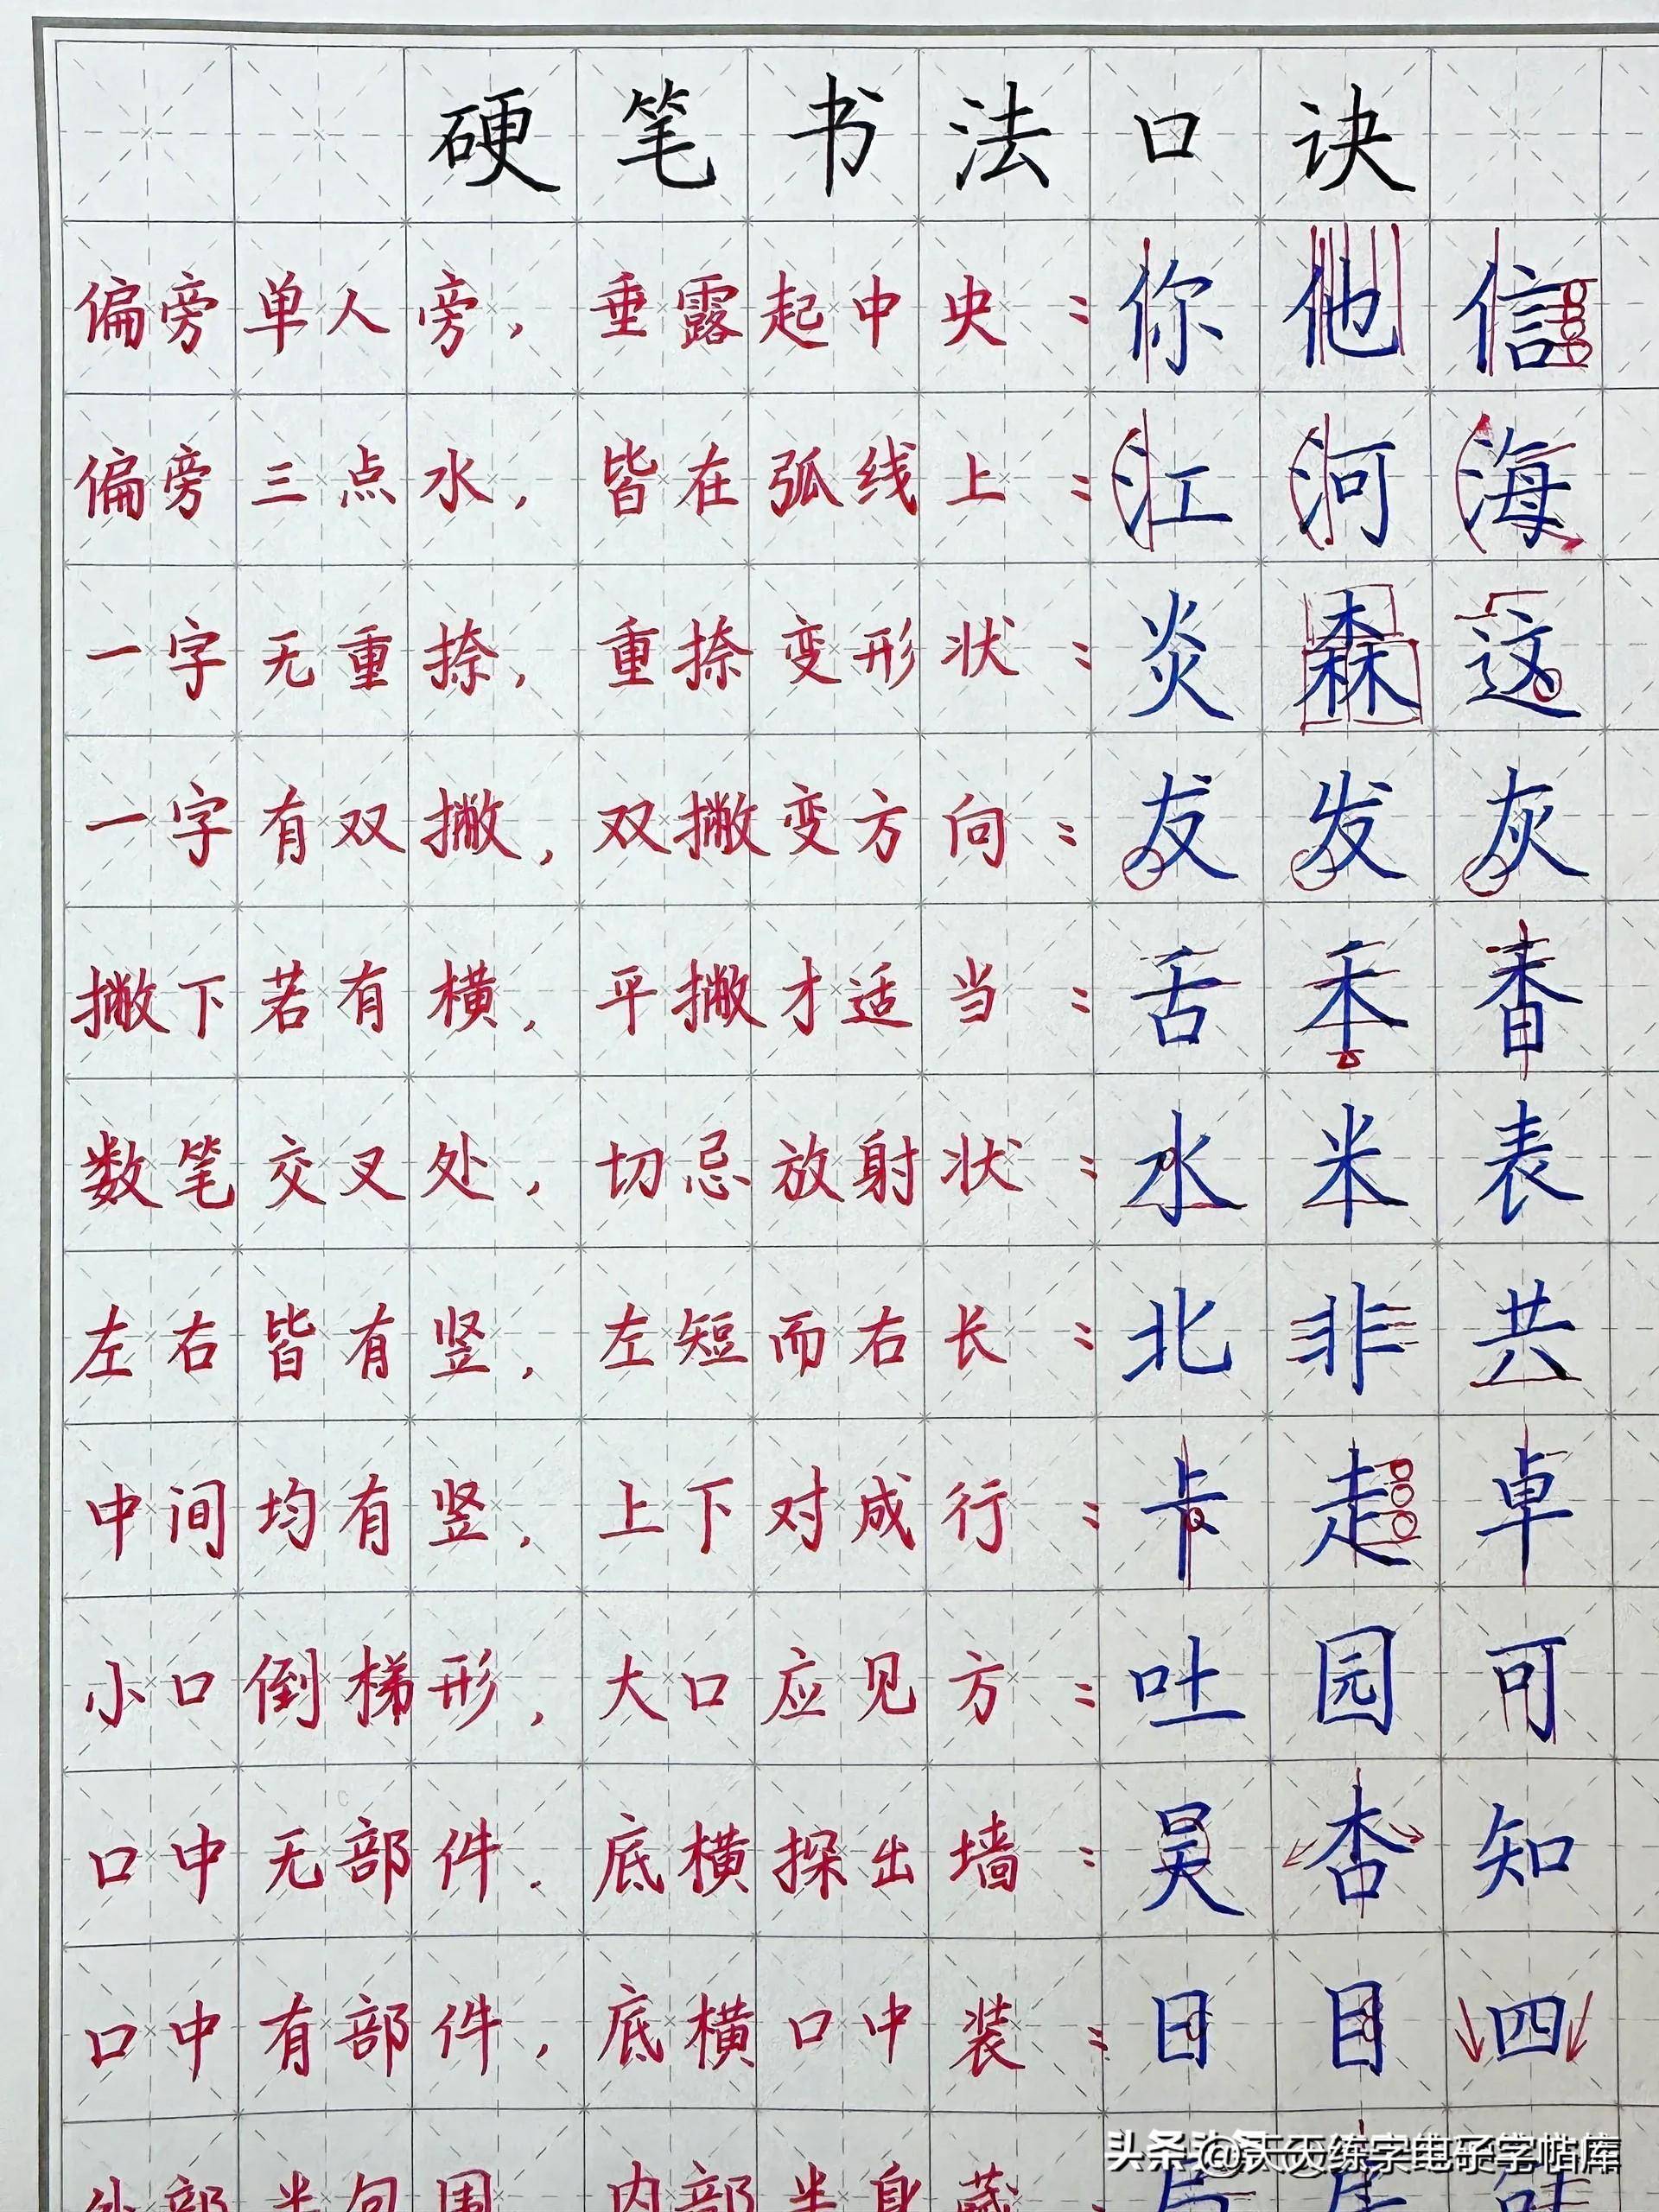 硬笔书法口诀
偏旁单人旁，垂露起中央：你他信
偏旁三点水，皆在弧线上：江河海
一字无重捺，重捺变形状：炎森这
一字有双撇，双撇变方向：友发灰
撇下若有横，平撇才适当：舌禾香
数笔交叉处，切忌放射状：水米表
左右皆有竖，左短而右长：北非共
中间均有竖，上下对成行：卡走卓
小口倒梯形，大口应见方：吐园可
口中无部件.底横探出墙：吴杏知
口中有部件，底横口中装：日目四
外部半包围 内部半身藏
头条 @天天练字电子字帖库